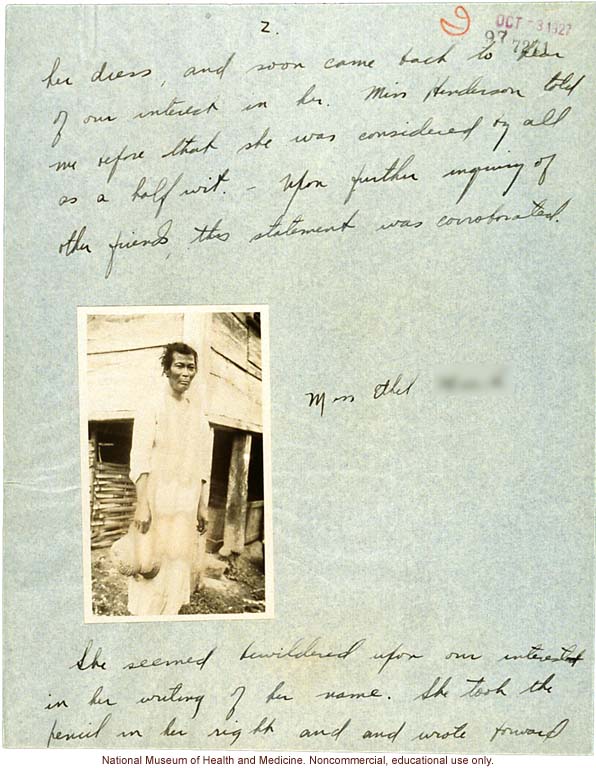 2.
OCT -3 1927
97 7241
her dress, and soon came back to
of our interest in her. Miss Henderson told
me before that she was considered by all
as a half wit. - Upon further inquiry of
other friends, this statement was corroborated.
Miss Ethel
She seemed bewildered upon our interest
in her writing of her name. She took the
pencil in her right and and wrote forward
National Museum of Health and Medicine. Noncommercial, educational use only.